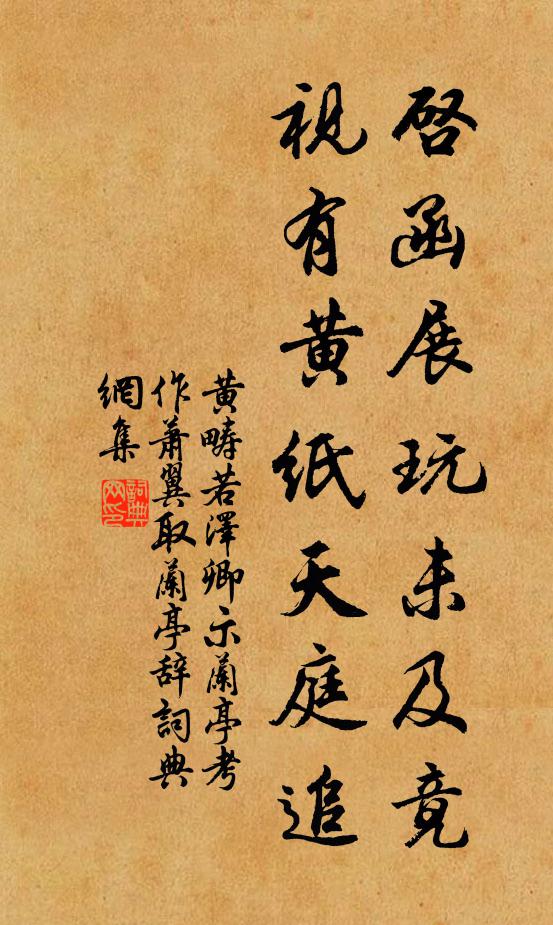 啓函展玩未及竟
視有黃紙天庭追
黃疇若澤卿示蘭亭考
作蕭翼取蘭亭辞詞典
網集
詞典
网印